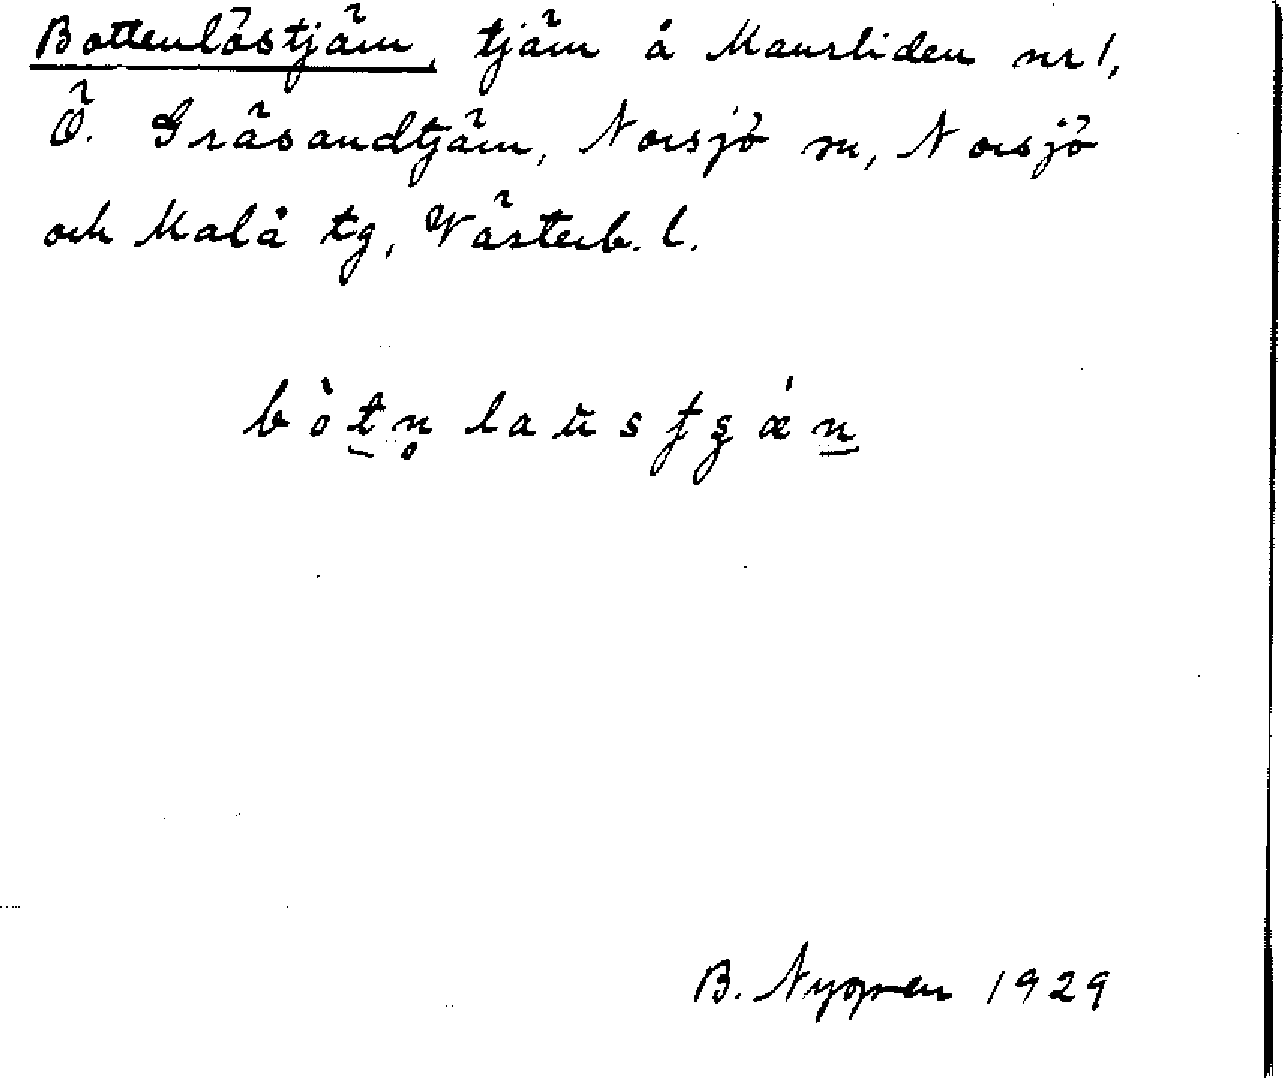 Bottenlöstjärn, tjärn å Maurliden nr 1,
Ö. Gräsandtjärn, Norsjö sn, Norsjö
och Malå tg, Västerb. l.
bòt̠n̥ laŭsʈʂǽn̠
B. Nygren 1929